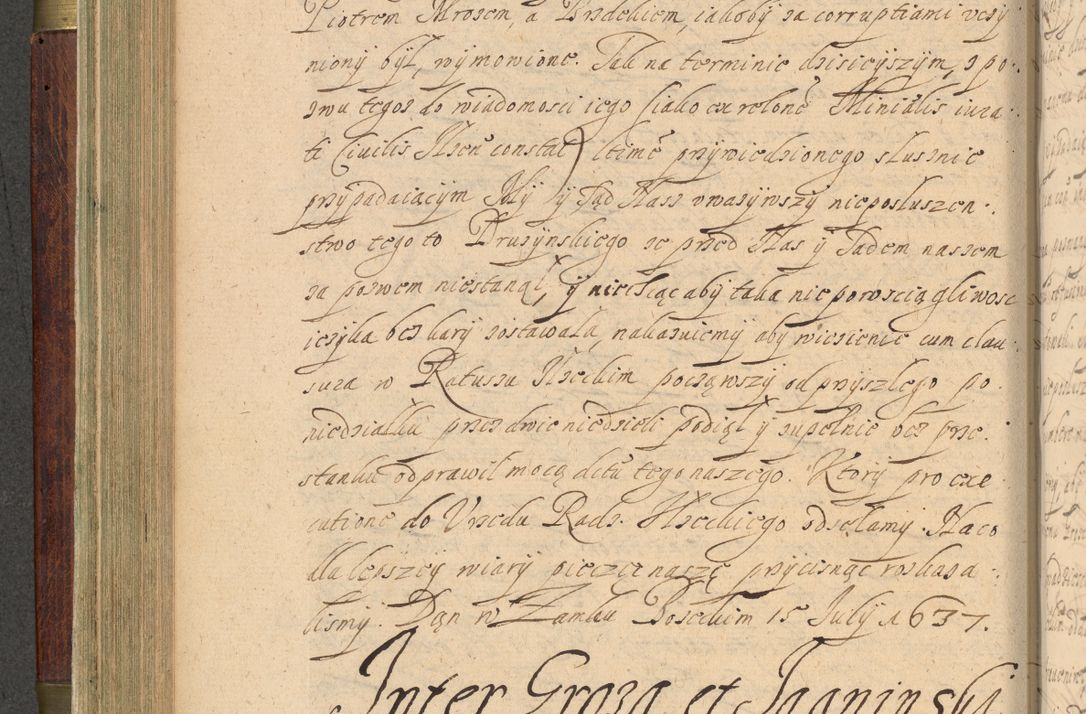 Piotrem Mrozem, a Brzdekiem, iakoby za corruptiami vczy
niony był, wymowione. Tak na terminie dzisieyszym, z po
zwu tegoz do wiadomosci iego (iako ex relone Minialis iura
ti Ciuilis Ilzen constat) ltime przywiedzionego słusznie
przypadaiącym My y Sąd Nasz vwazywszy nieposłuszen
stwo tego to Bruzynskiego ze przed Nas y Sadem naszem
za pozwem niestanął, y niechcąc aby taka niepowsciągliwosc
ięzyka bez kary zostawała, nakazuiemy aby więzienie cum clau
sura w Ratuszu Ilzeckim począwszy od przyszłego po
niedziałku przez dwie niedzieli podiął y zupełnie bez prze
stanku odprawił mocą dctu tego naszego. Ktory pro exe
cutione do Vrzedu Radz. Ilzeckiego odsełamy. Na co
dla lepszey wiary pieczęc naszę przycisnąc roskaza
lismy. Dan w Zamku Bosekim 15 July 1637.
Inter Groza et Jaaninski